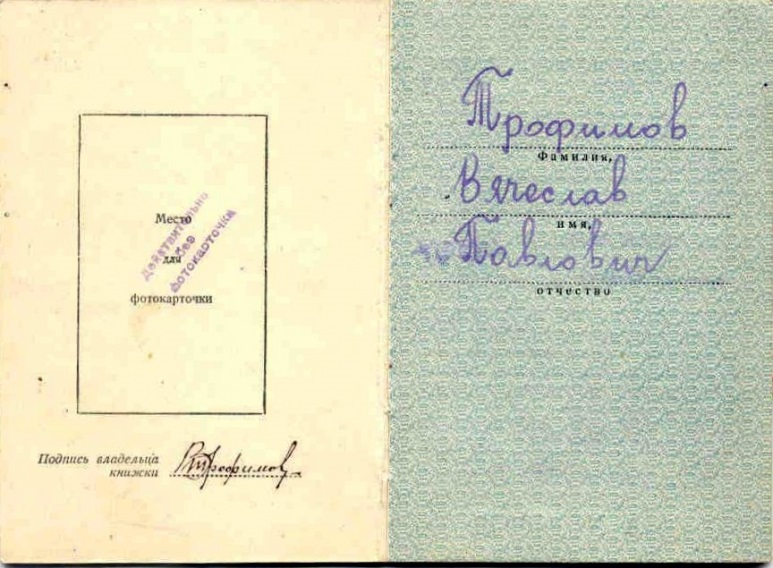 Место
для
фотокарточки
Действительно
без
фотокарточки
Подпись владельца
книжки
ВТрофимов
Трофимов
Фамилия,
Вячеслав
имя,
Павлович
отчество